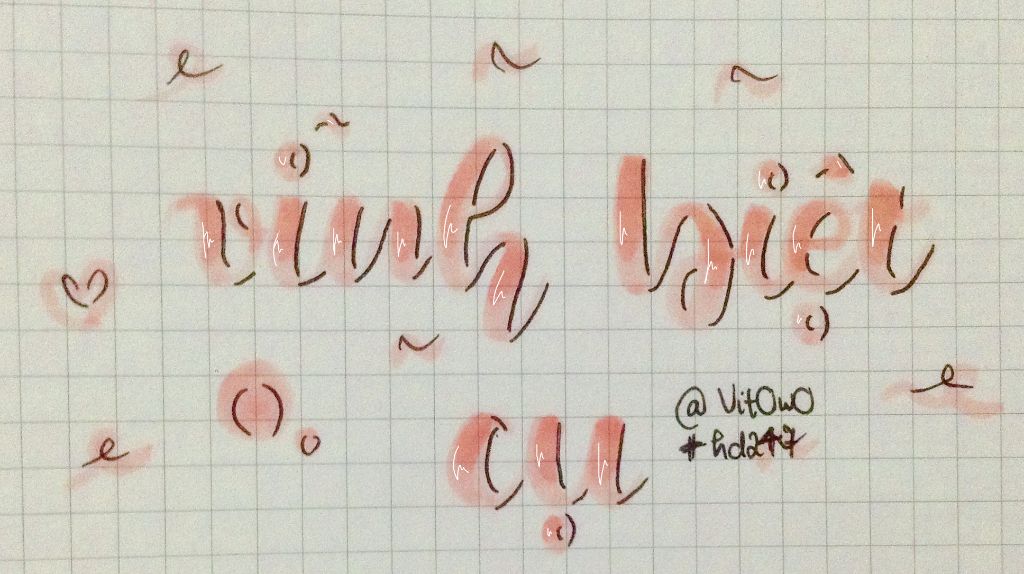 vĩnh biệt
cụ
@ VitOwO
#hd247